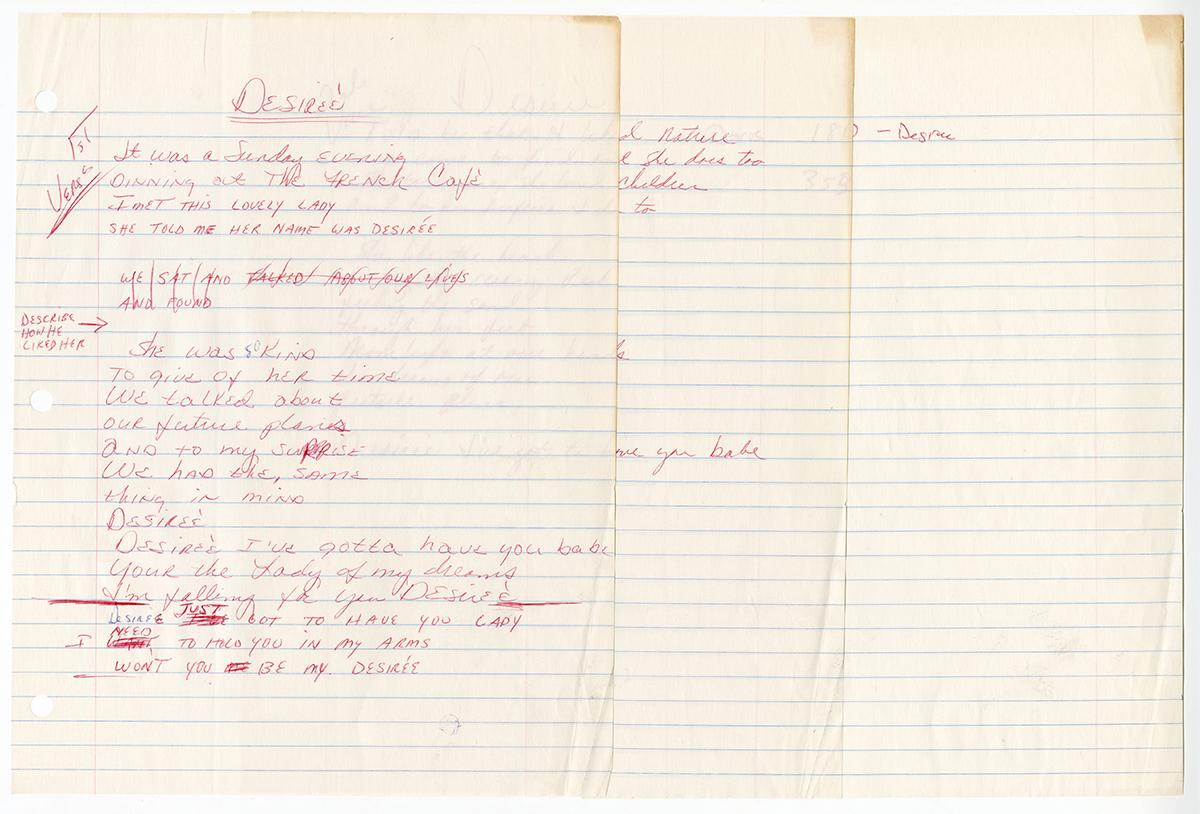 DESIREÉ
1ST
VERSE
It was a Sunday EVENING
DINNING at THE FRENCH Café
I MET THIS LOVELY LADY
SHE TOLD ME HER NAME WAS DESIRÉE
WE SAT AND TALKED ABOUT OUR LIVES
AND FOUND
DESCRIBE
HOW HE
LIKED HER
She was so KIND
TO give of her time
We talked about
our future plans
and to my SURPRISE
We had the, SAME
thing in mind
DESIREÉ
DESIREÉ I've gotta have you babe
Your the Lady of my dreams
I'm falling for you DESIREÉ
DESIREE JUST GOT TO HAVE YOU LADY
I NEED TO HOLD YOU IN MY ARMS
WON'T YOU BE MY DESIRÉE
d Nature
e She does too
children
to
me you babe
- Desiree